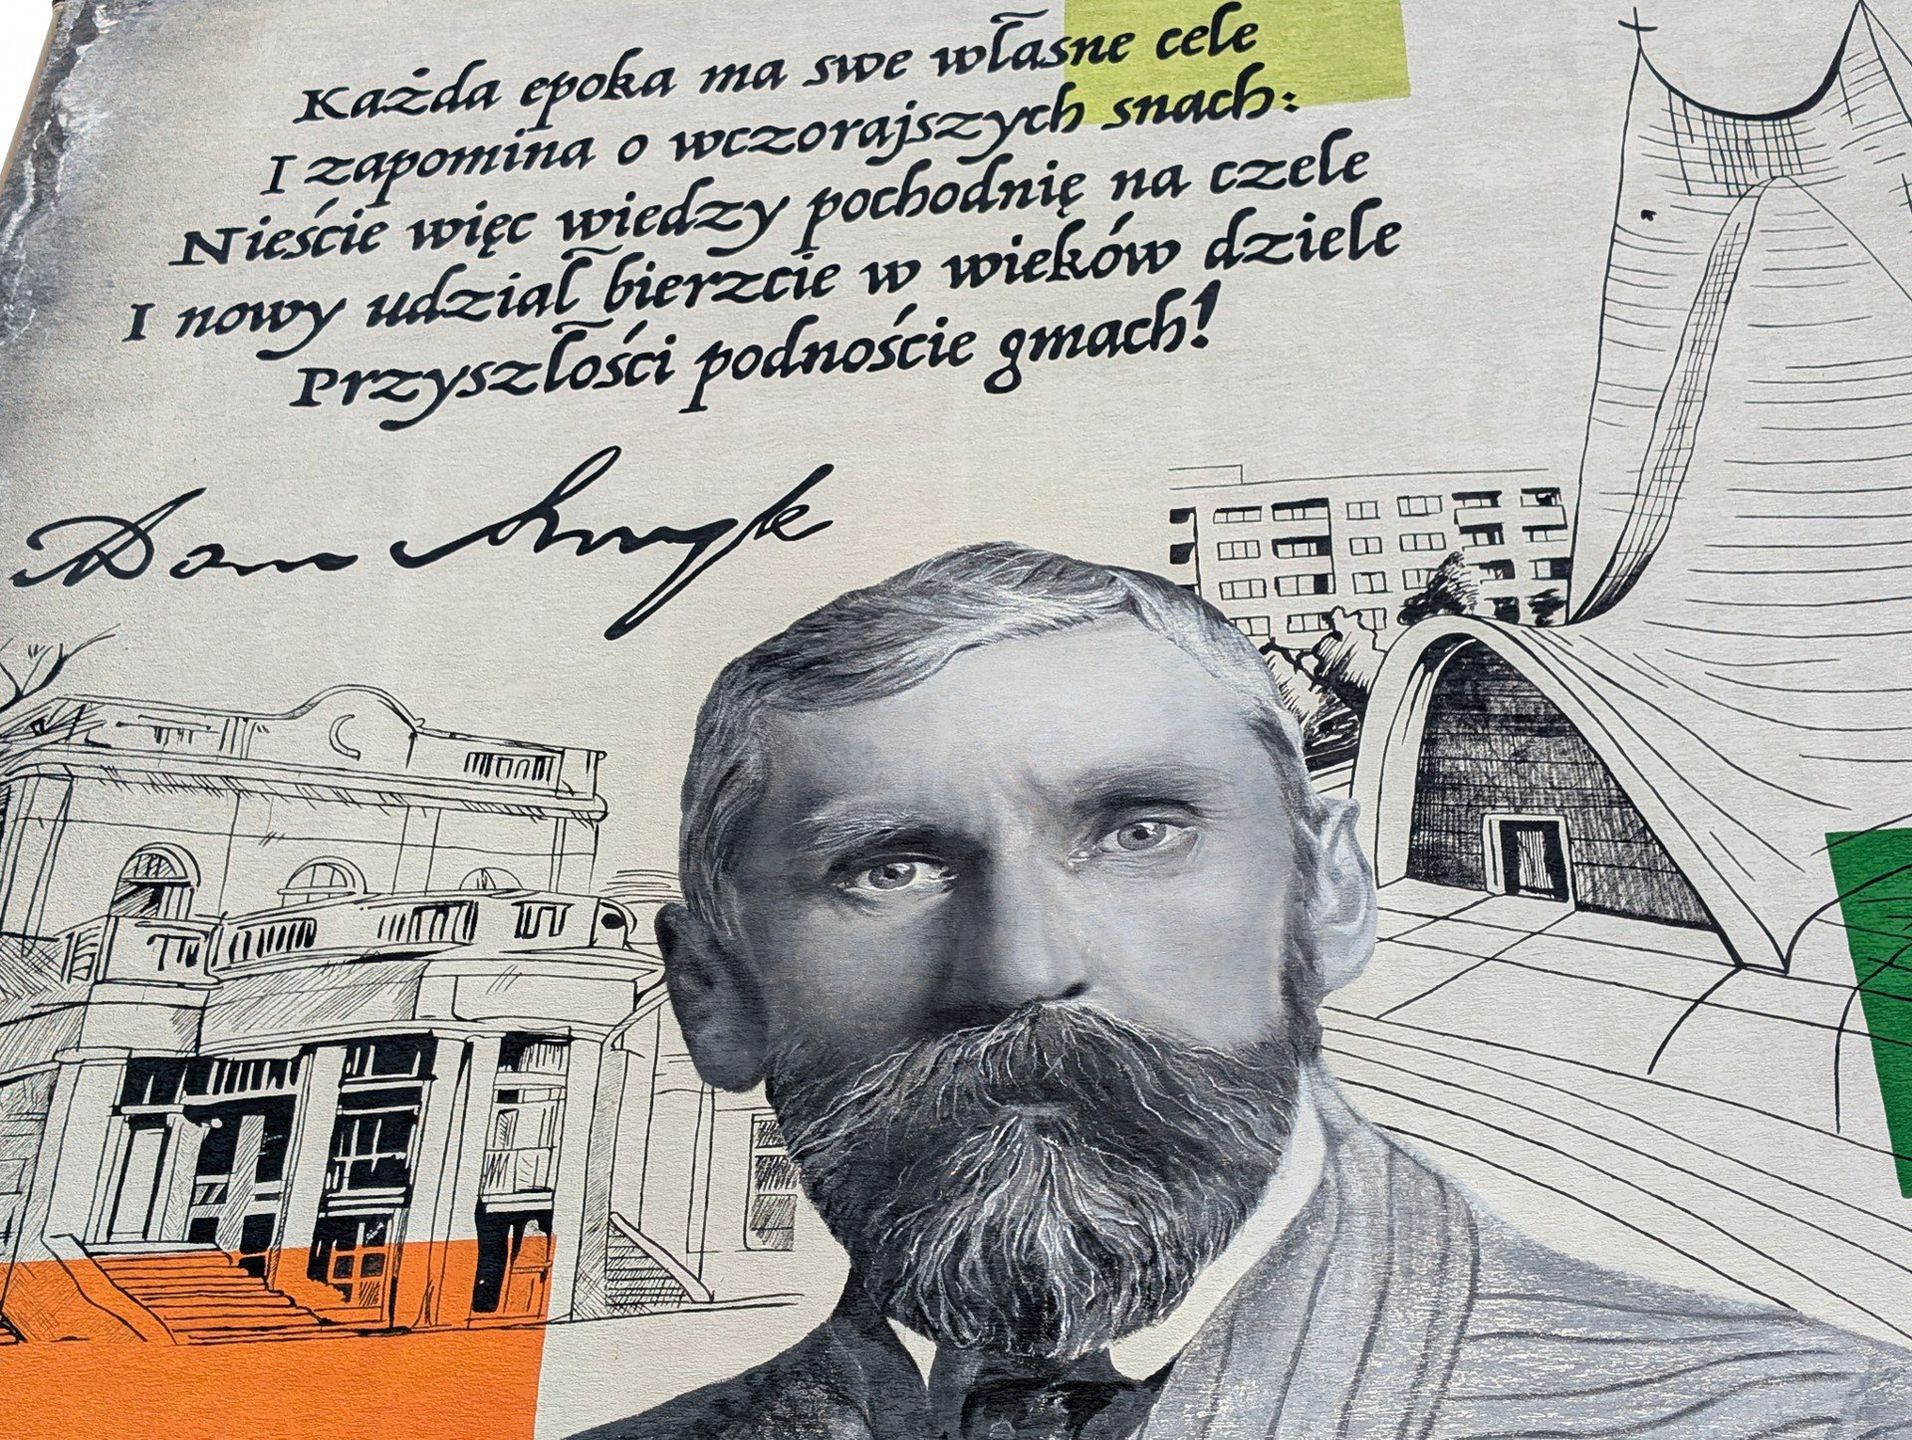 Każda epoka ma swe własne cele
I zapomina o wczorajszych snach:
Nieście więc wiedzy pochodnię na czele
I nowy udział bierzcie w wieków dziele
Przyszłości podnoście gmach!
Adam Asnyk